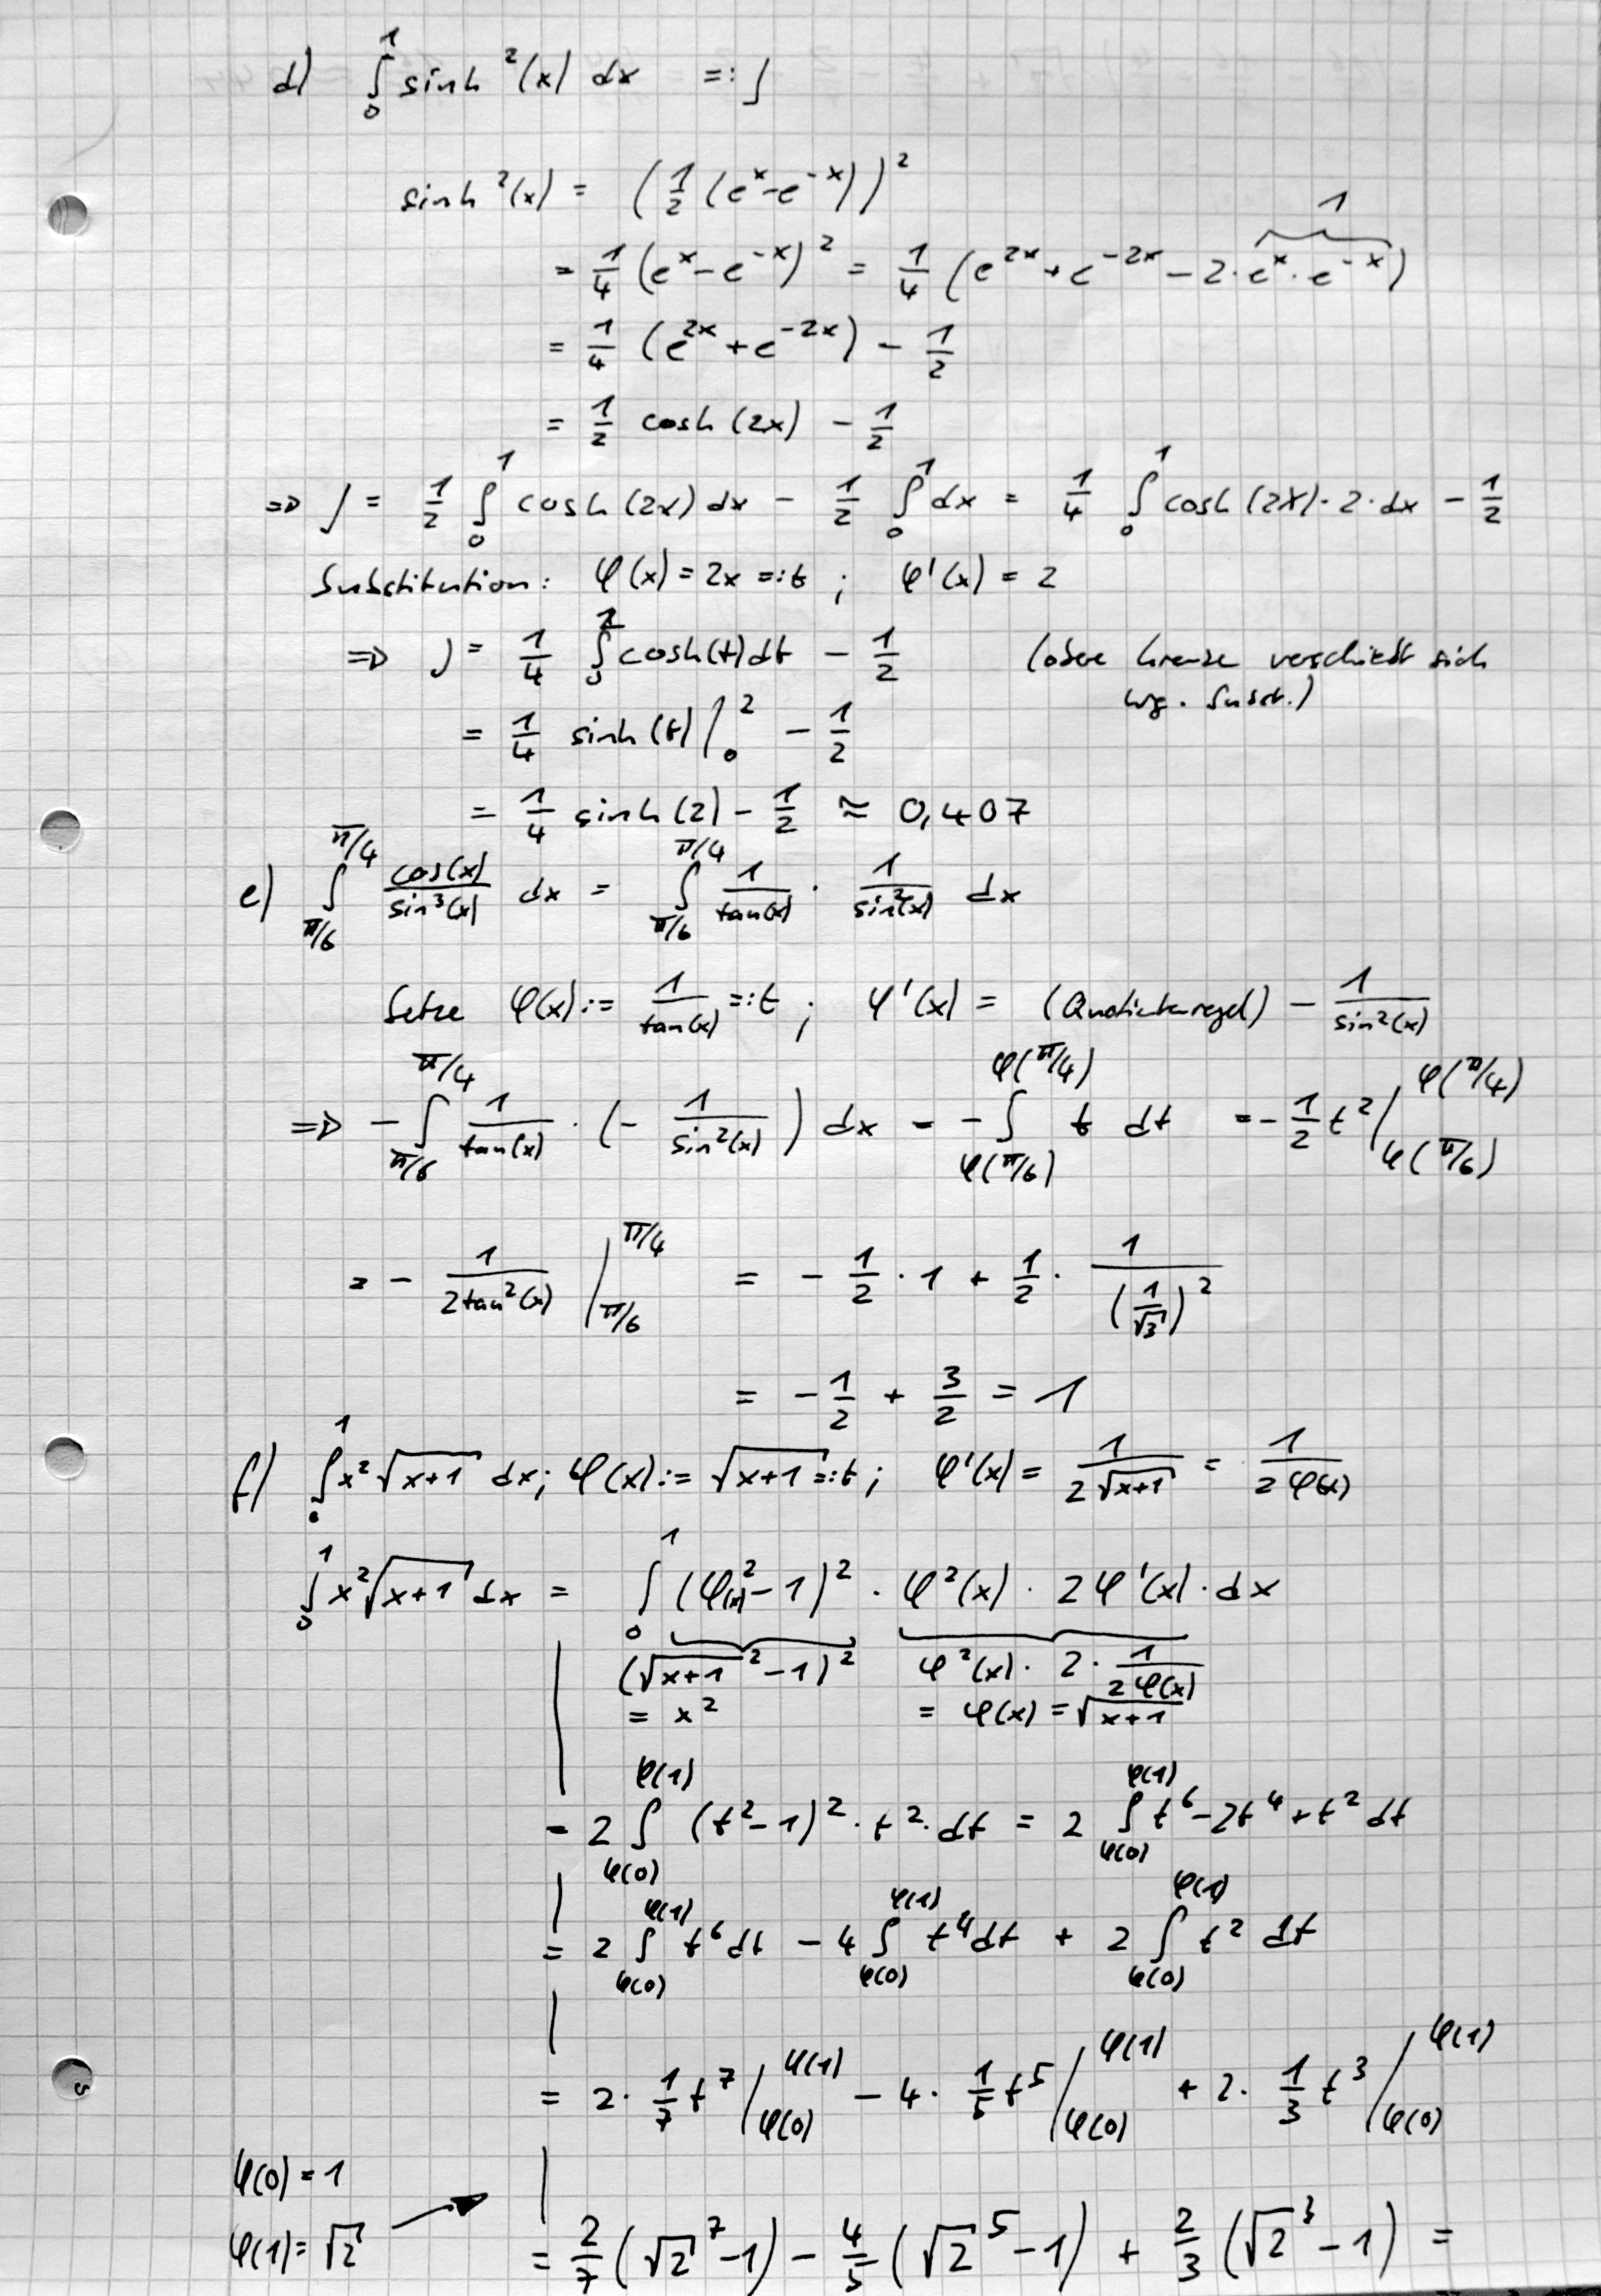 d) ∫₀¹ sinh²(x) dx =: J
sinh²(x) = (1/2 (eˣ-e⁻ˣ))²
= 1/4 (eˣ-e⁻ˣ)² = 1/4 (e²ˣ+e⁻²ˣ - 2·eˣ·e⁻ˣ) 1
= 1/4 (e²ˣ+e⁻²ˣ) - 1/2
= 1/2 cosh(2x) - 1/2
=> J = 1/2 ∫₀¹ cosh(2x) dx - 1/2 ∫₀¹ dx = 1/4 ∫₀¹ cosh(2x)·2·dx - 1/2
Substitution: φ(x) = 2x =: t ; φ'(x) = 2
=> J = 1/4 ∫₀² cosh(t) dt - 1/2 (obere Grenze verschiebt sich
wg. Subst.)
= 1/4 sinh(t) |₀² - 1/2
= 1/4 sinh(2) - 1/2 ≈ 0,407
e) ∫_{π/6}^{π/4} cos(x)/sin³(x) dx = ∫_{π/6}^{π/4} 1/tan(x) · 1/sin²(x) dx
Setze φ(x) := 1/tan(x) =: t ; φ'(x) = (Quotientenregel) - 1/sin²(x)
=> -∫_{π/6}^{π/4} 1/tan(x) · (- 1/sin²(x)) dx = -∫_{φ(π/6)}^{φ(π/4)} t dt = -1/2 t² |_{φ(π/6)}^{φ(π/4)}
= - 1/(2tan²(x)) |_{π/6}^{π/4} = - 1/2 · 1 + 1/2 · 1/(1/√3)²
= - 1/2 + 3/2 = 1
f) ∫₀¹ x²√(x+1) dx; φ(x) := √(x+1) =: t ; φ'(x) = 1/(2√(x+1)) = 1/(2φ(x))
∫₀¹ x²√(x+1) dx = ∫₀¹ (φ(x)²-1)² · φ²(x) · 2φ'(x)·dx
(√(x+1)²-1)² φ²(x) · 2 · 1/(2φ(x))
= x² = φ(x) = √(x+1)
= 2 ∫_{φ(0)}^{φ(1)} (t²-1)² · t² · dt = 2 ∫_{φ(0)}^{φ(1)} t⁶-2t⁴+t² dt
= 2 ∫_{φ(0)}^{φ(1)} t⁶ dt - 4 ∫_{φ(0)}^{φ(1)} t⁴ dt + 2 ∫_{φ(0)}^{φ(1)} t² dt
= 2 · 1/7 t⁷ |_{φ(0)}^{φ(1)} - 4 · 1/5 t⁵ |_{φ(0)}^{φ(1)} + 2 · 1/3 t³ |_{φ(0)}^{φ(1)}
φ(0) = 1
φ(1) = √2 = 2/7 (√2⁷-1) - 4/5 (√2⁵-1) + 2/3 (√2³-1) =